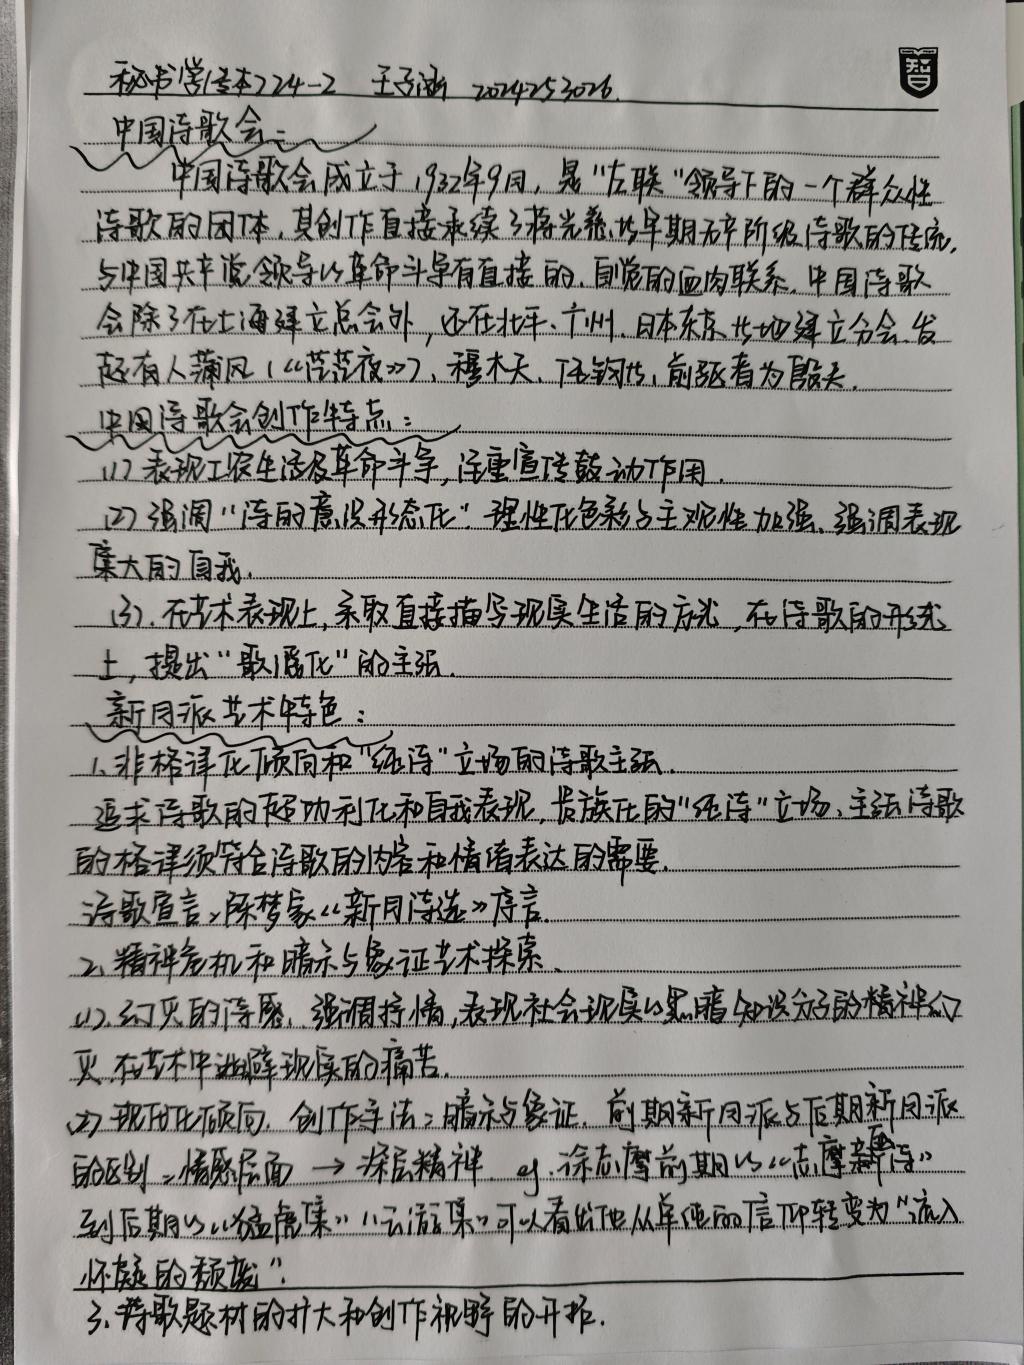 秘书学(专本)224-2 王子涵 2024253026.
智
中国诗歌会：
中国诗歌会成立于1932年9月，是"左联"领导下的一个群众性
诗歌的团体，其创作直接承续了蒋光慈等早期无产阶级诗歌的传统，
与中国共产党领导的革命斗争有直接的、自觉的血肉联系，中国诗歌
会除了在上海建立总会外，还在北平、广州、日本东京等地建立分会、发
起有人蒲风(《茫茫夜》)、穆木天、任钧等，前驱者为殷夫.
中国诗歌会创作特点：
(1)表现工农生活及革命斗争，注重宣传鼓动作用.
(2)强调"诗的意识形态化"理性化色彩与主观性加强、强调表现
集大的自我.
(3).在艺术表现上，采取直接描写现实生活的方式，在诗歌的形式
上，提出"歌谣化"的主张.
新月派艺术特色：
1、非格律化倾向和"纯诗"立场的诗歌主张.
追求诗歌的超功利化和自我表现，贵族化的"纯诗"立场、主张诗歌
的格律须符合诗歌的内容和情绪表达的需要.
诗歌宣言：陈梦家《新月诗选》序言.
2、精神危机和暗示与象征艺术探索、
(1).幻灭的诗感、强调抒情，表现社会现实的黑暗知识分子的精神幻
灭.在艺术中逃避现实的痛苦.
(2)现代化倾向、创作手法：暗示与象征.前期新月派与后期新月派
的区别：情感层面→深层精神. eg.徐志摩前期的《志摩的诗》
到后期的《猛虎集》《云游集》可以看出他从单纯的信仰转变为"流入
怀疑的颓废".
3、诗歌题材的扩大和创作视野的开拓.